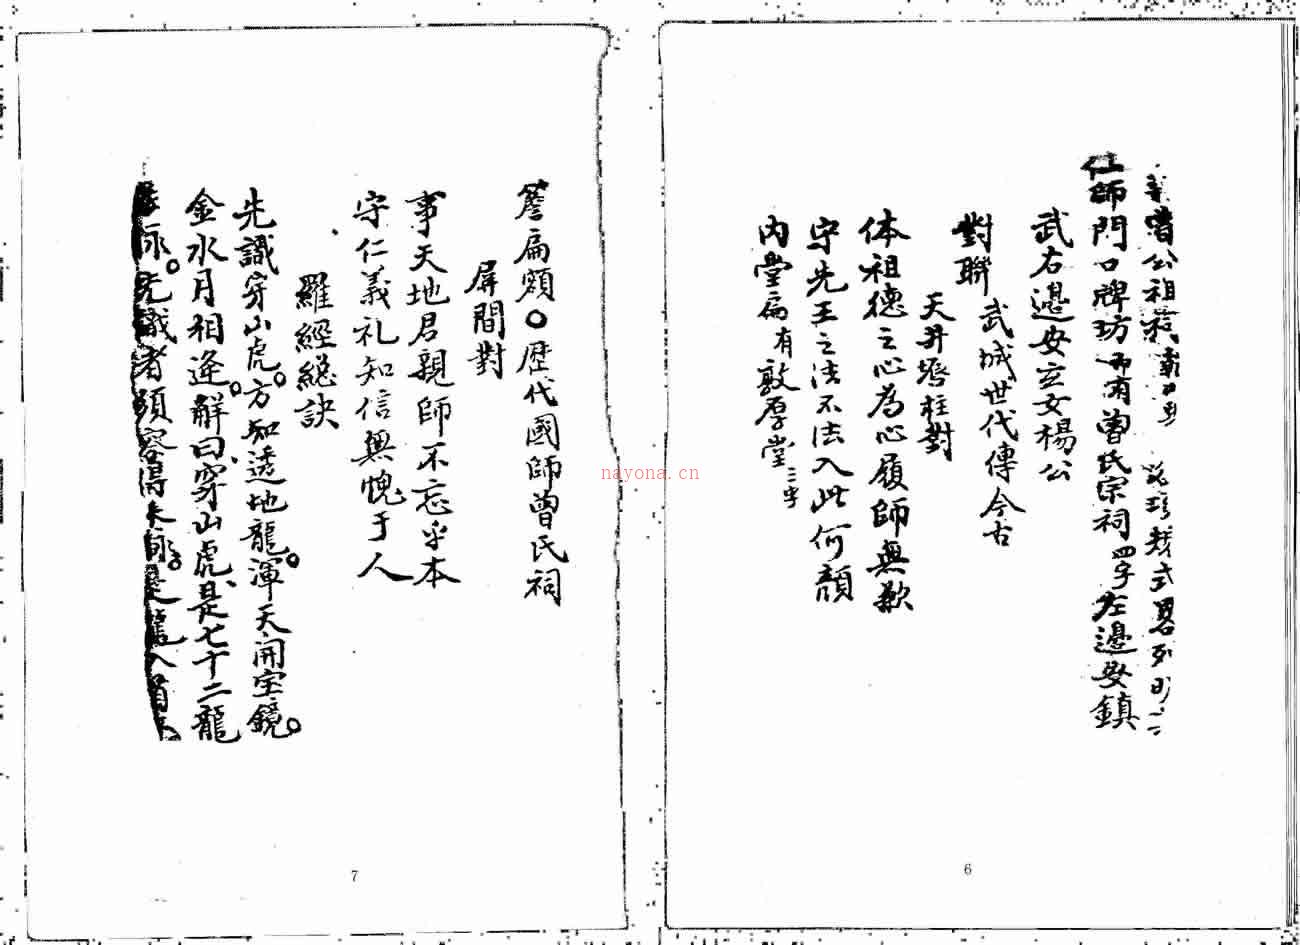 曾公祖祠 式畧列
仕師門口牌坊 有曾氏宗祠四字左邊安鎮
武右邊安玄女楊公
對聯
武城世代傳今古
天井 柱對
体祖德之心為心履師無歉
守先王之法不法入此何顏
内堂扁有敦厚堂三字
6
簷扁額〇歴代國師曾氏祠
屏間對
事天地君親師不忘乎本
守仁義礼知信無愧于人
羅經總訣
先識穿山虎。方知透地龍。渾天開宝鏡。
金水月相逢。解曰穿山虎是七十二龍
先識者須容得 龍入首
7
nayona.cn